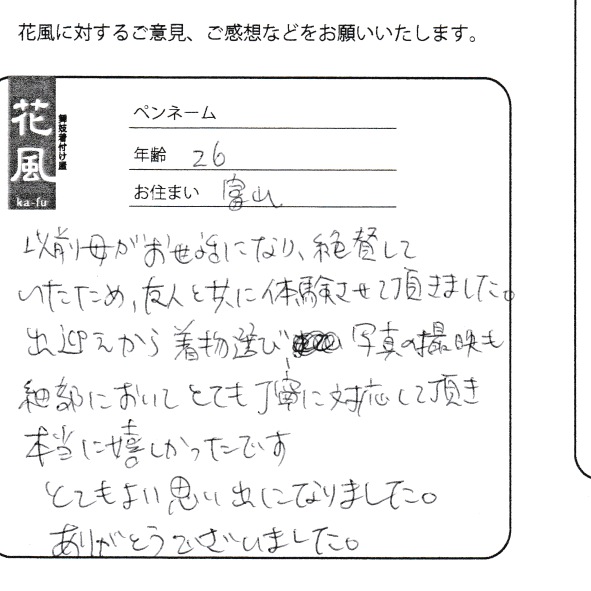 花風に対するご意見、ご感想などをお願いいたします。
花風
舞妓着付け屋
ka-fu
ペンネーム
年齢 26
お住まい 富山
以前母がお世話になり、絶賛して
いたため、友人と共に体験させて頂きました。
出迎えから着物選び 写真の撮映も
細部においてとても丁寧に対応して頂き
本当に嬉しかったです
とてもよい思い出になりました。
ありがとうございました。